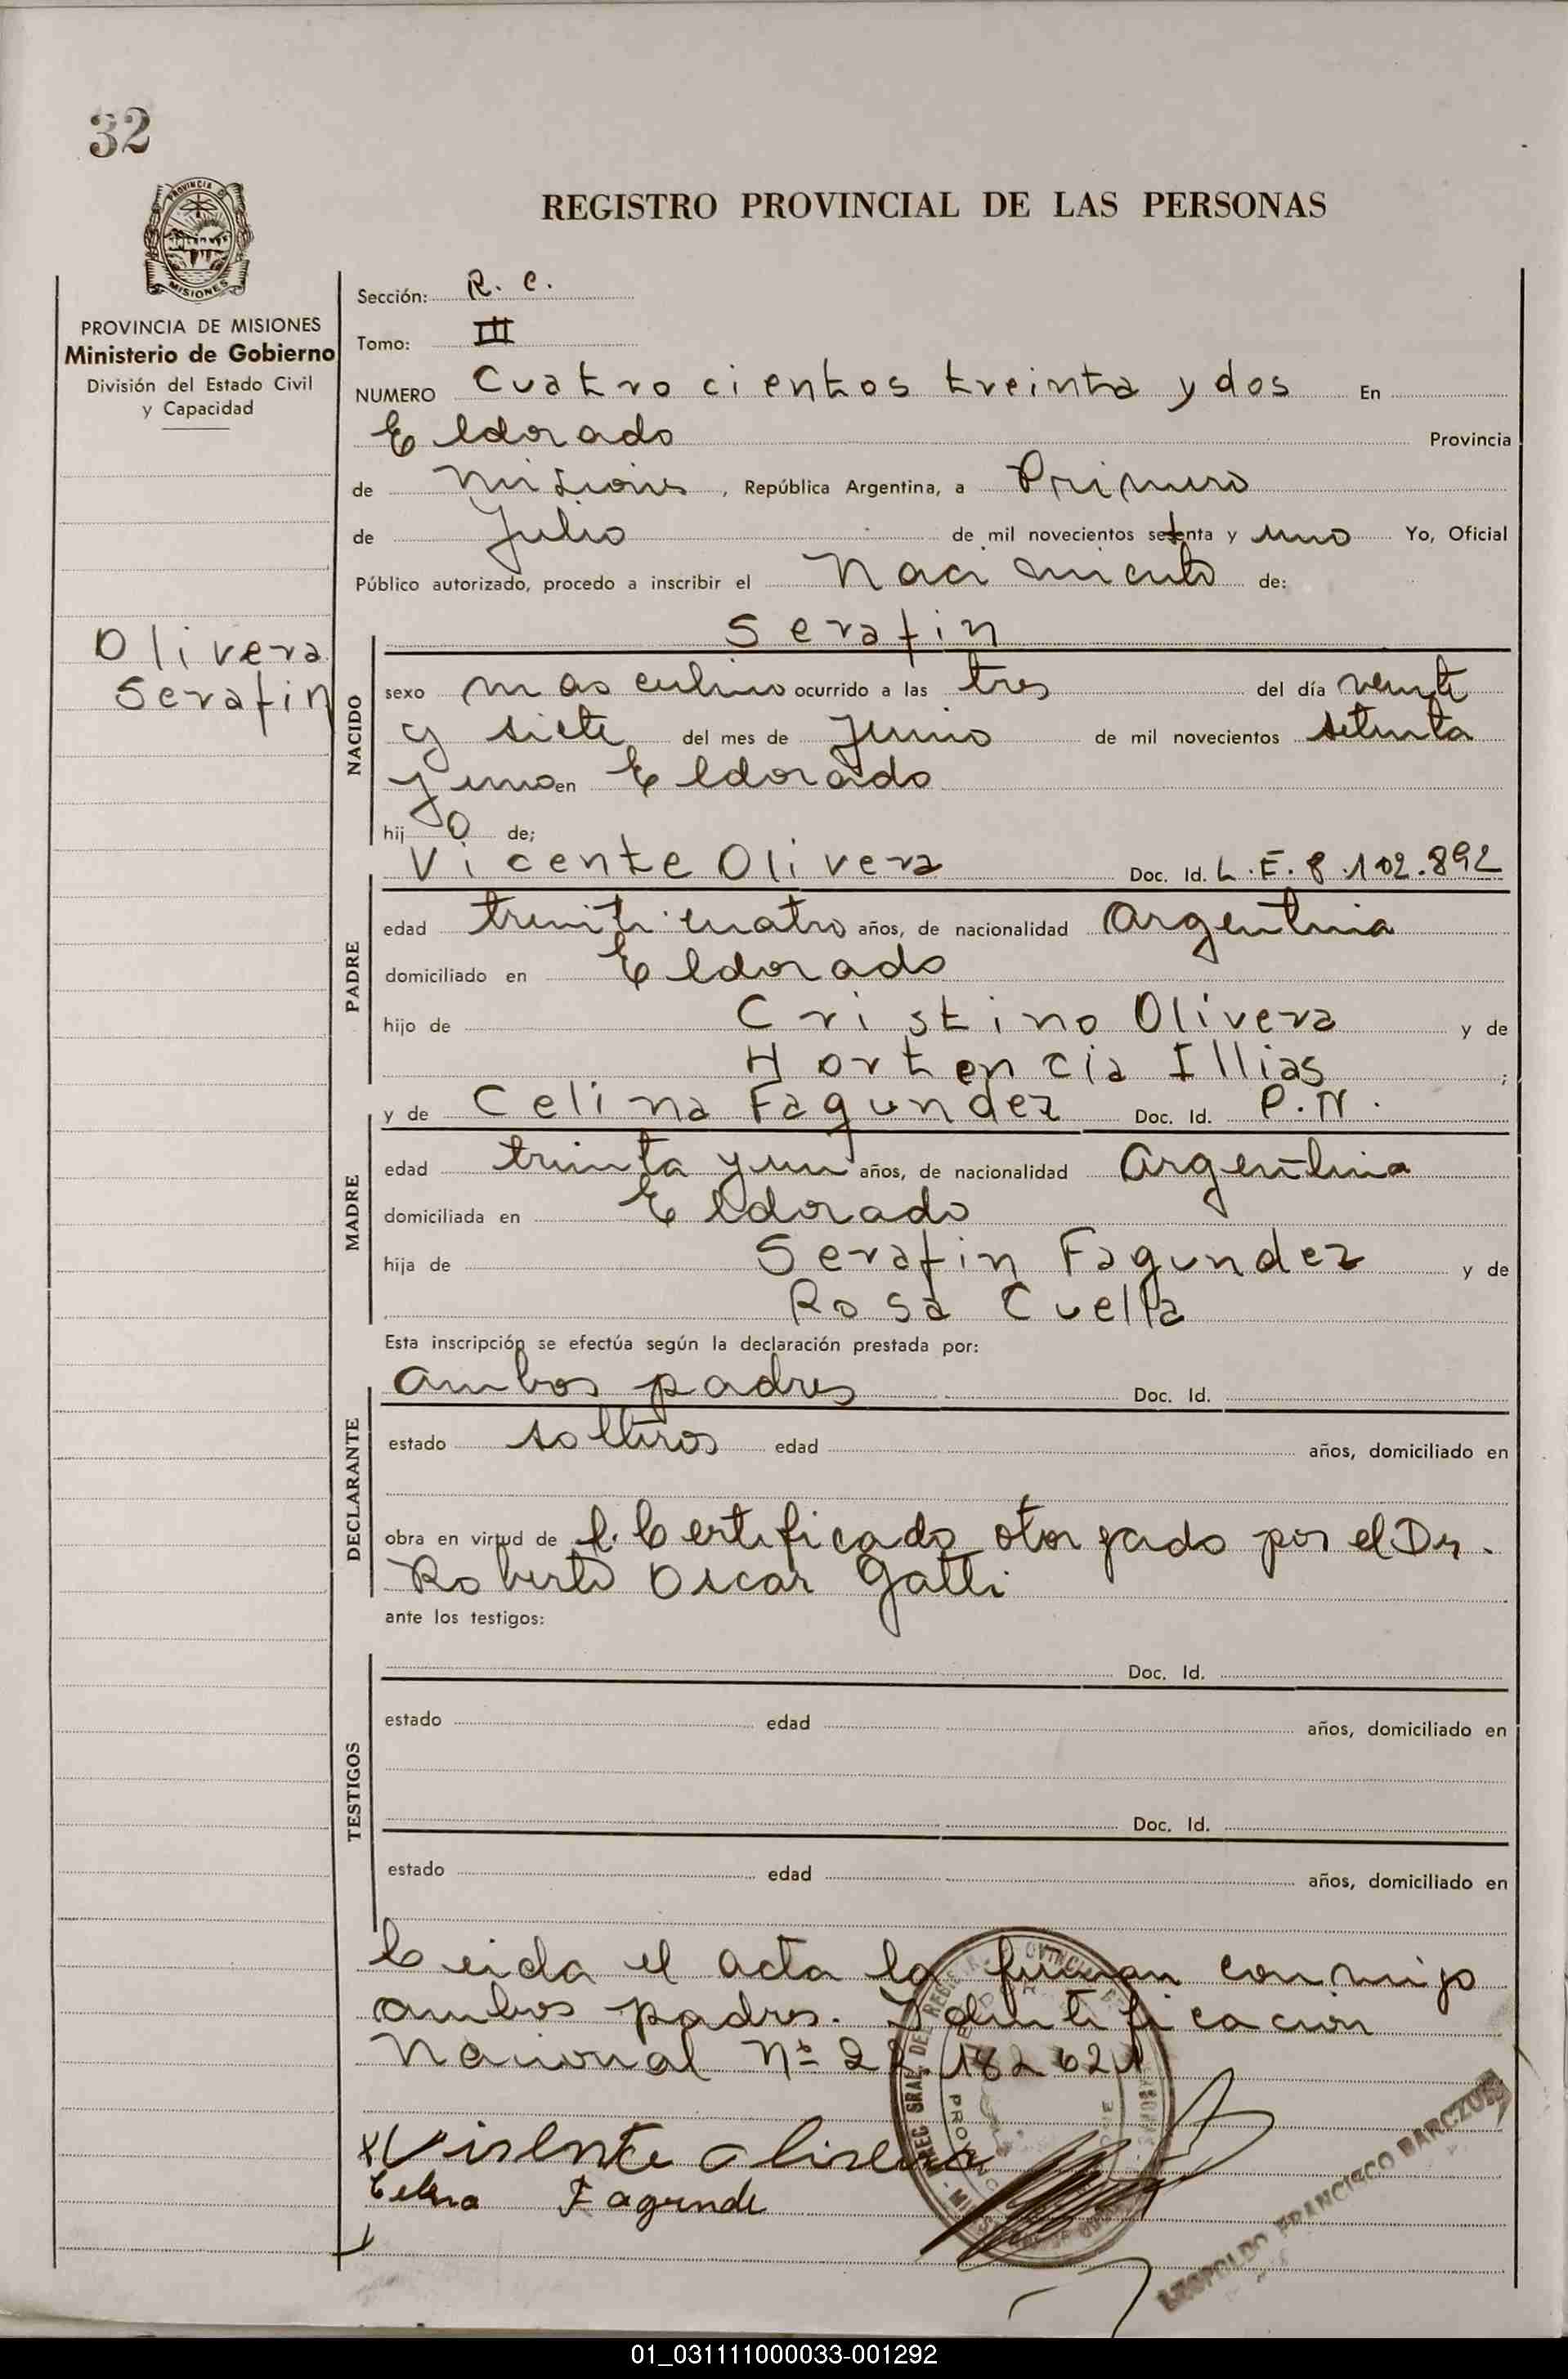 32
PROVINCIA DE MISIONES
Ministerio de Gobierno
División del Estado Civil
y Capacidad
REGISTRO PROVINCIAL DE LAS PERSONAS
Sección: R. C.
Tomo: III
NUMERO Cuatrocientos treinta y dos En
Eldorado Provincia
de Misiones, República Argentina, a Primero
de Julio de mil novecientos setenta y uno Yo, Oficial
Público autorizado, procedo a inscribir el Nacimiento de:
Olivera
Serafin
NACIDO
Serafin
sexo masculino ocurrido a las tres del día veinte
y siete del mes de Junio de mil novecientos setenta
y uno en Eldorado
hij o de;
PADRE
Vicente Olivera Doc. Id. L.E. 8.102.892
edad treinti cuatro años, de nacionalidad Argentina
domiciliado en Eldorado
hijo de Cristino Olivera y de
Hortencia Illias ;
MADRE
y de Celina Fagundez Doc. Id. P.N.
edad treinta y un años, de nacionalidad Argentina
domiciliada en Eldorado
hija de Serafin Fagundez y de
Rosa Cuella
Esta inscripción se efectúa según la declaración prestada por:
DECLARANTE
ambos padres Doc. Id.
estado solteros edad años, domiciliado en
obra en virtud de Certificado otorgado por el Dr.
Roberto Oscar Gatti
ante los testigos:
TESTIGOS
Doc. Id.
estado edad años, domiciliado en
Doc. Id.
estado edad años, domiciliado en
Leida el acta la firman conmigo
ambos padres. Identificación
Nacional Nº 22.182621
Visente Olivera
Fagunde
LEOPOLDO FRANCISCO BARCZUK
01_031111000033-001292